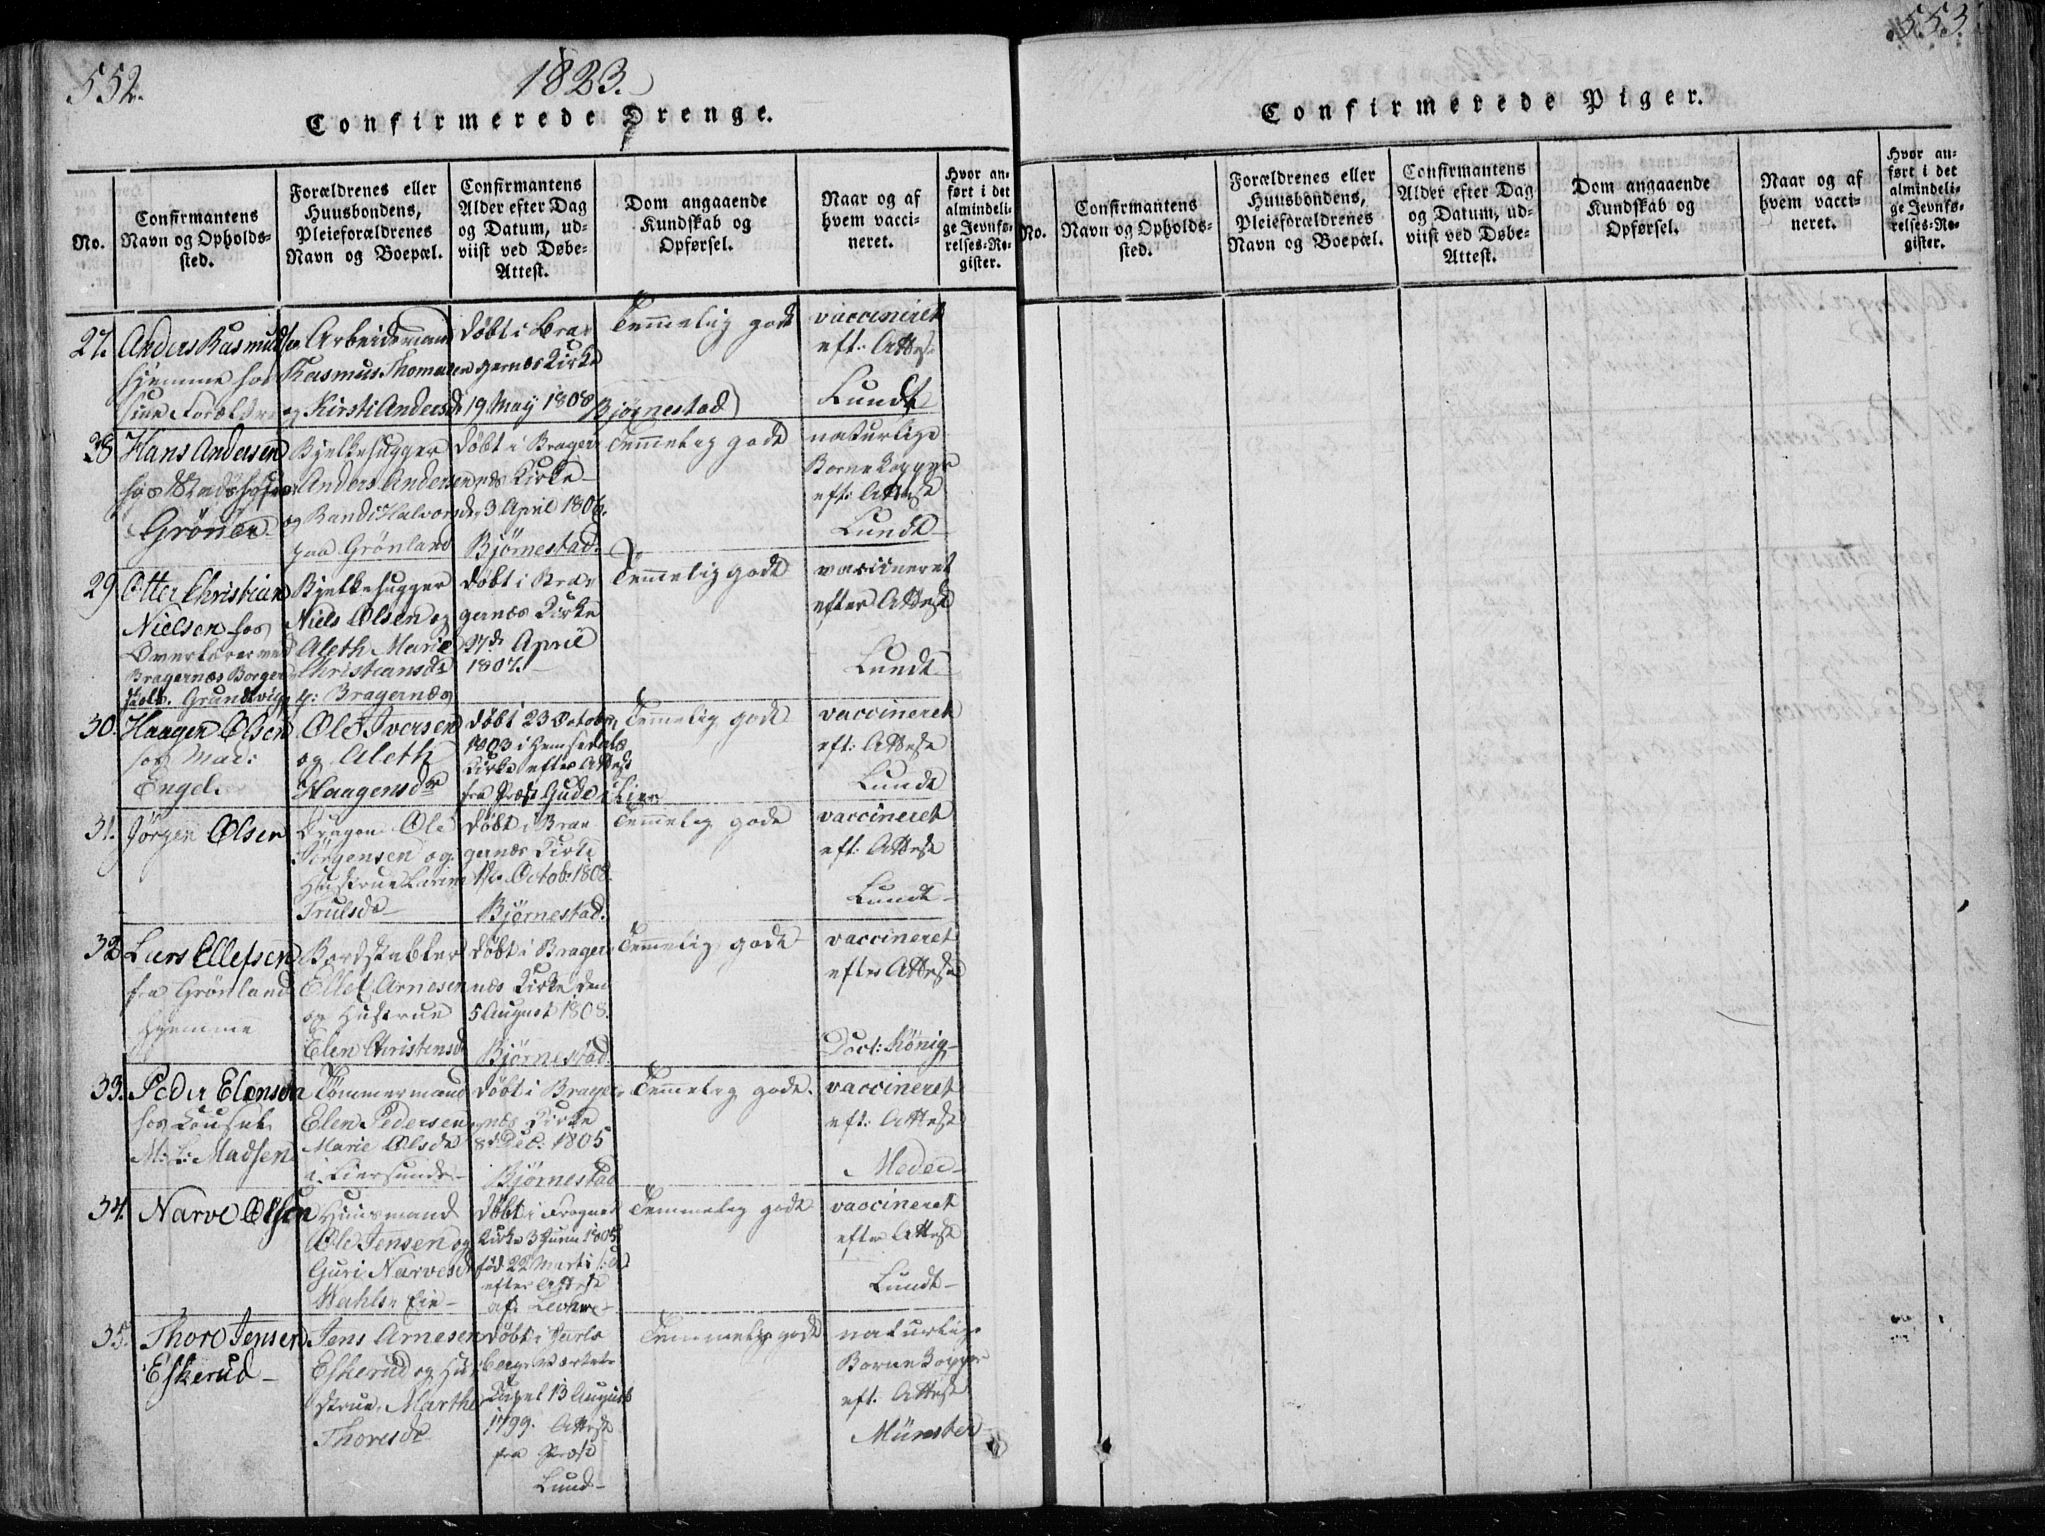 552.
1823.
Confirmerede Drenge.
No.
Confirmantens
Navn og Opholds-
sted.
Forældrenes eller
Huusbondens,
Pleieforældrenes
Navn og Boepæl.
Confirmantens
Alder efter Dag
og Datum, ud-
viist ved Døbe-
Attest.
Dom angaaende
Kundskab og
Opførsel.
Naar og af
hvem vacci-
neret.
Hvor an-
ført i det
almindeli-
ge Jevnfø-
relses-Re-
gister.
27.
Anders Rasmuds
hjemme hos
sine Forældre
Arbeidsmand
Rasmus Thomasen
og Kirsti Andersd
døbt i Bra-
gernæs Kirke
19 Maÿ 1808
Bjørnestad
Temmelig godt
vaccineret
eft: Attest
Lundt
28
Hans Andersen
hos
Grøner
Bjelkehugger
Anders Andersen
og Randi Halvorsd
paa Grønland
døbt i Brager-
næs Kirke
3 April 1806.
Bjørnestad.
Temmelig godt
naturlige
Børnekopper
eft: Attest
Lundt
29
Otter Christian
Nielsen hos
Overlærer ved
Bragernæs Borger
skole. Grundtvig
Bjelkehugger
Niels Olsen og
Aleth Marie
Christiansd
p: Bragernæs
døbt i Bra-
gernæs Kirke
27d. April
1807.
Temmelig godt
vaccineret
efter Attest
Lundt
30.
Haagen Olsen
hos Mad:
Engel.
Ole Iversen
og Aleth
Haagensdr
døbt 23 October
1803 i Hemsedals
Kirke efter Attest
fra Præst Gude i Lier
Temmelig godt
vaccineret
eft: Attest
Lundt
31.
Jörgen Olsen
Ole
Jörgensen og
Hustrue Karen
Trulsdr
døbt i Bra-
gernæs Kirke
Octob: 1808.
Bjørnestad.
Temmelig godt
vaccineret
eft: Attest
Lundt
32
Lars Ellefsen
fra Grönland
hjemme
Bordstabler
Ellef Arnesen
og Hustrue
Elen Christensd
døbt i Brager-
næs Kirke den
5 August 1808.
Bjørnestad.
Temmelig godt
vaccineret
efter Attest
Doct: König
33.
Peder Elensen
hos Consul
M: L: Madsen
Tömmermand
Elen Pedersen
Marie Olsd
i Liersund
døbt i Brager-
næs Kirke
8d Dec: 1805
Bjørnestad
Temmelig godt.
vaccineret
eft: Attest
Meder
34.
Narve Olsen
Huusmand
Ole Jensen og
Guri Narvesd
døbt i Frogner
Kirke 3 Junii 1805
fød 22 Marti
efter Attest
af
Temmelig godt
vaccineret
efter Attest
Lundt
35.
Thore Jensen
Eskerud
Jens Arnesen
Eskerud og Hu-
strue Marthe
Thoresdr
døbt i Jarls-
berg Værkets
Capel 13 August
1799. Attest
fra Præst
Lund
Temmelig godt
naturlige
Børnekopper
eft: Attest
Münster
553.
Confirmerede Piger.
No.
Confirmantens
Navn og Opholds-
sted.
Forældrenes eller
Huusbondens,
Pleieforældrenes
Navn og Boepæl.
Confirmantens
Alder efter Dag
og Datum, ud-
viist ved Døbe-
Attest.
Dom angaaende
Kundskab og
Opførsel.
Naar og af
hvem vacci-
neret.
Hvor an-
ført i det
almindeli-
ge Jevnfø-
relses-Re-
gister.